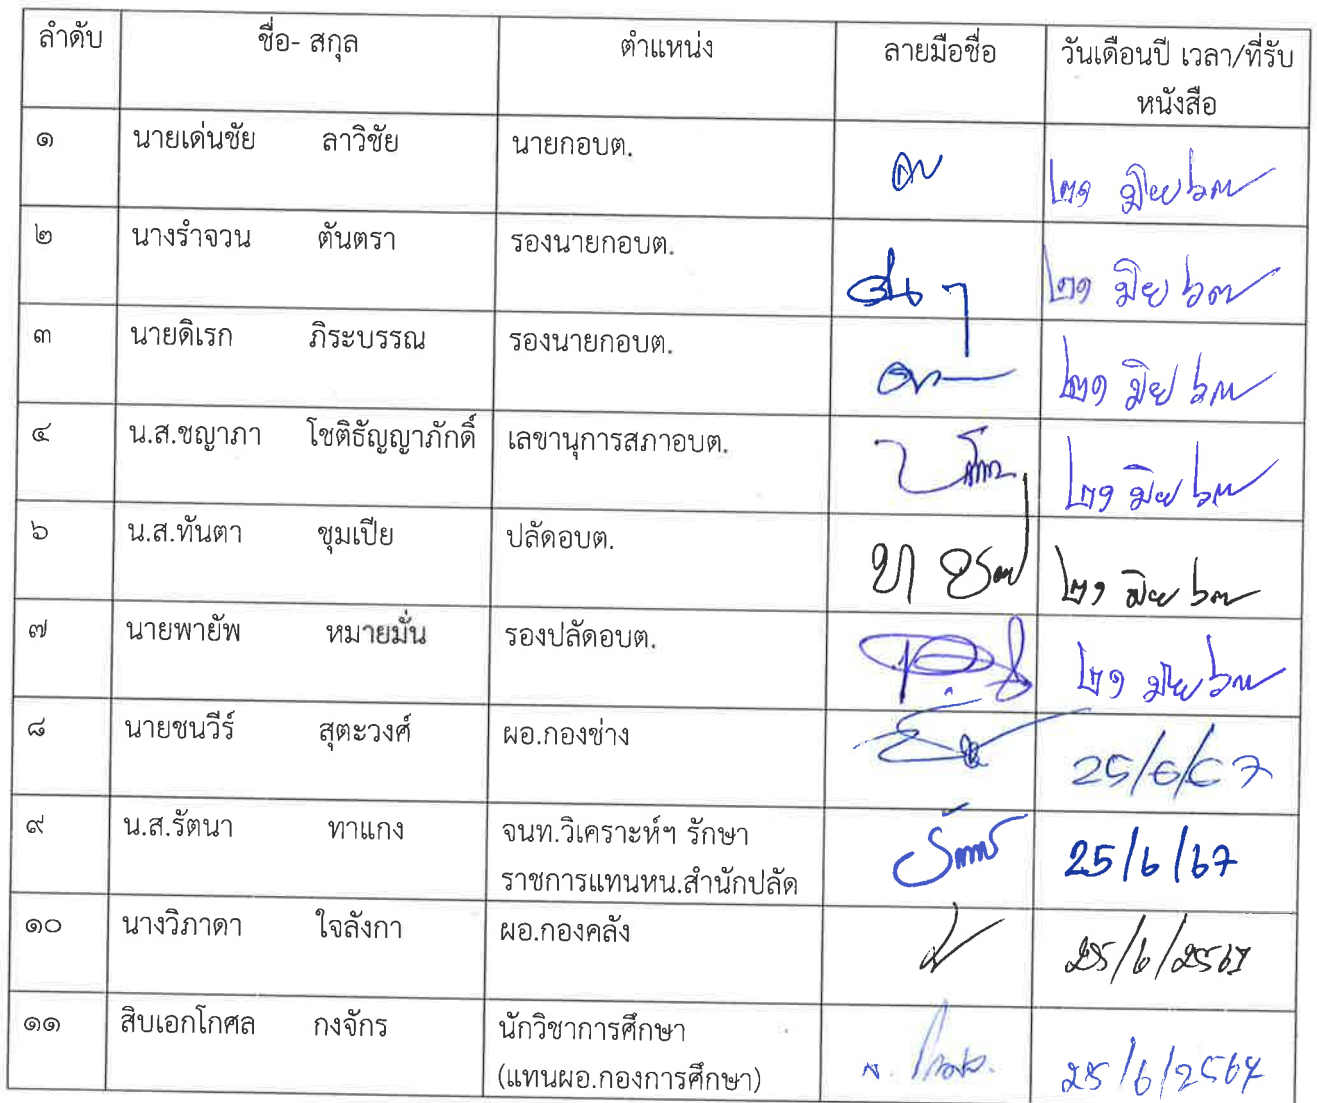 ลำดับ ชื่อ- สกุล ตำแหน่ง ลายมือชื่อ วันเดือนปี เวลา/ที่รับ
หนังสือ
๑ นายเด่นชัย ลาวิชัย นายกอบต. ๒๑ มิย ๖๗
๒ นางรำจวน ตันตรา รองนายกอบต. ๒๑ มิย ๖๗
๓ นายดิเรก ภิระบรรณ รองนายกอบต. ๒๑ มิย ๖๗
๔ น.ส.ชญาภา โชติธัญญาภักดิ์ เลขานุการสภาอบต. ๒๑ มิย ๖๗
๖ น.ส.ทันตา ชุมเปีย ปลัดอบต. ๒๑ มิย ๖๗
๗ นายพายัพ หมายมั่น รองปลัดอบต. ๒๑ มิย ๖๗
๘ นายชนวีร์ สุตะวงศ์ ผอ.กองช่าง 25/6/67
๙ น.ส.รัตนา ทาแกง จนท.วิเคราะห์ฯ รักษา 25/6/67
ราชการแทนหน.สำนักปลัด
๑๐ นางวิภาดา ใจลังกา ผอ.กองคลัง 25/6/2567
๑๑ สิบเอกโกศล กงจักร นักวิชาการศึกษา
(แทนผอ.กองการศึกษา) 25/6/2567